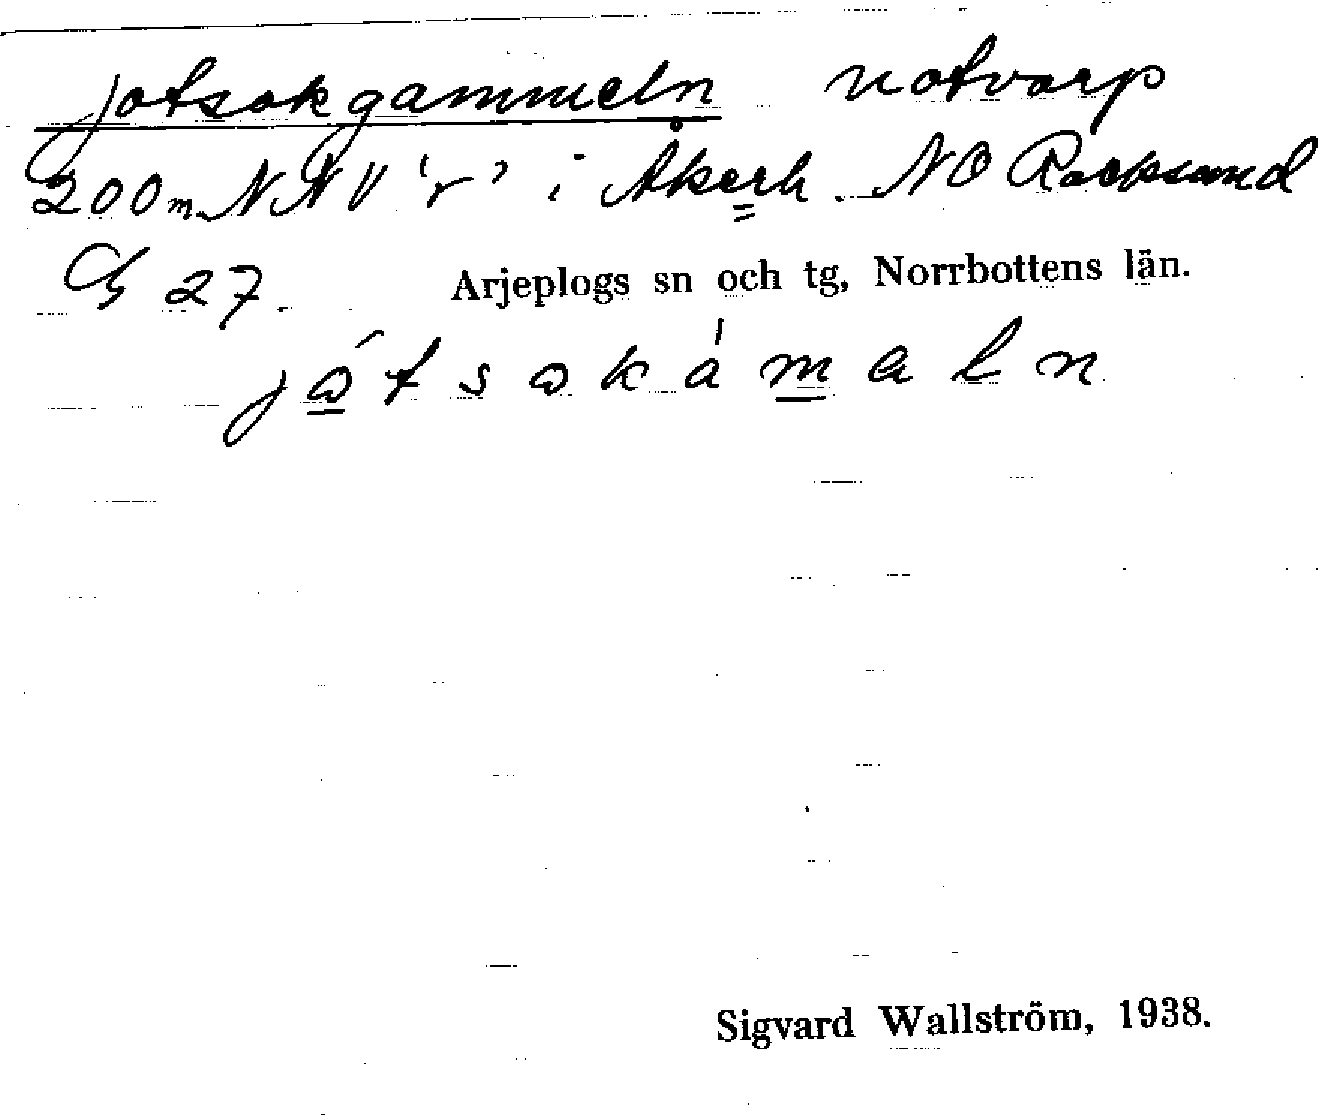 jotsokgammeln notvarp
200 m NNV 'r' i Åkerh. NO Racksund
27. Arjeplogs sn och tg, Norrbottens län.
jåtsokámaln
Sigvard Wallström, 1938.